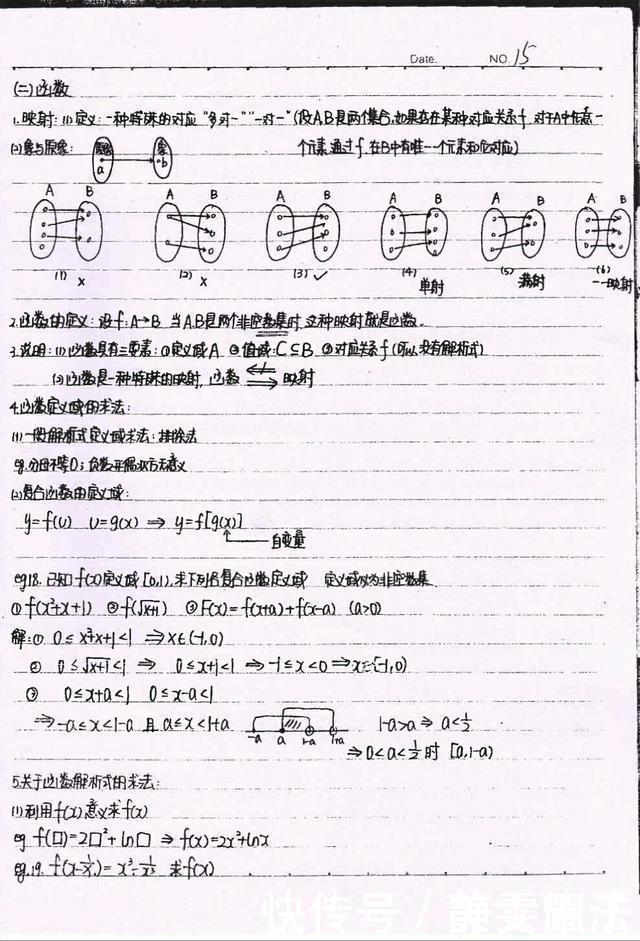 Date. NO. 15
(二)函数
1.映射:(1)定义:一种特殊的对应 "多对一" "一对一" (设A.B是两个集合,如果存在某种对应关系f,对于A中任意一
(2)象与原象: 原象 a 象 b 个元素通过f,在B中有唯一一个元素和它对应)
A B A B A B A B A B A B
(1) × (2) × (3) ✓ (4) 单射 (5) 满射 (6) 一一映射
2.函数的定义:设f:A→B 当A.B是两个非空数集时,这种映射就是函数.
3.说明:(1)函数具有三要素:①定义域A ②值域:C⊆B ③对应关系f(可以没有解析式)
(2)函数是一种特殊的映射, 函数 映射
4.函数定义域的求法:
(1)一般解析式定义域求法:排除法
eg.分母不等0;负数开偶次方无意义
(2)复合函数的定义域:
y=f(u) u=g(x) ⇒ y=f[g(x)]
自变量
eg18.已知f(x)定义域[0,1),求下列各复合函数定义域 定义域必为非空数集
①f(x²+x+1) ②f(√x+1) ③F(x)=f(x+a)+f(x-a) (a>0)
解:① 0≤x²+x+1<1 ⇒x∈(-1,0)
② 0≤√x+1<1 ⇒ 0≤x+1<1 ⇒-1≤x<0⇒x∈[-1,0)
③ 0≤x+a<1 0≤x-a<1
⇒-a≤x<1-a 且 a≤x<1+a -a a 1-a 1+a 1-a>a ⇒ a<1/2
⇒0<a<1/2时 [a,1-a)
5.关于函数解析式的求法:
(1)利用f(x)意义求f(x)
eg f(□)=2□²+ln□ ⇒f(x)=2x²+lnx
eg.19. f(x-1/x)=x³-1/x³ 求f(x)
快传号/静雯臞法